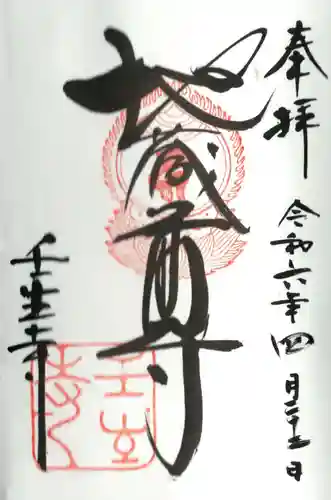 奉拝
令和六年四月二十五日
地蔵尊
壬生寺